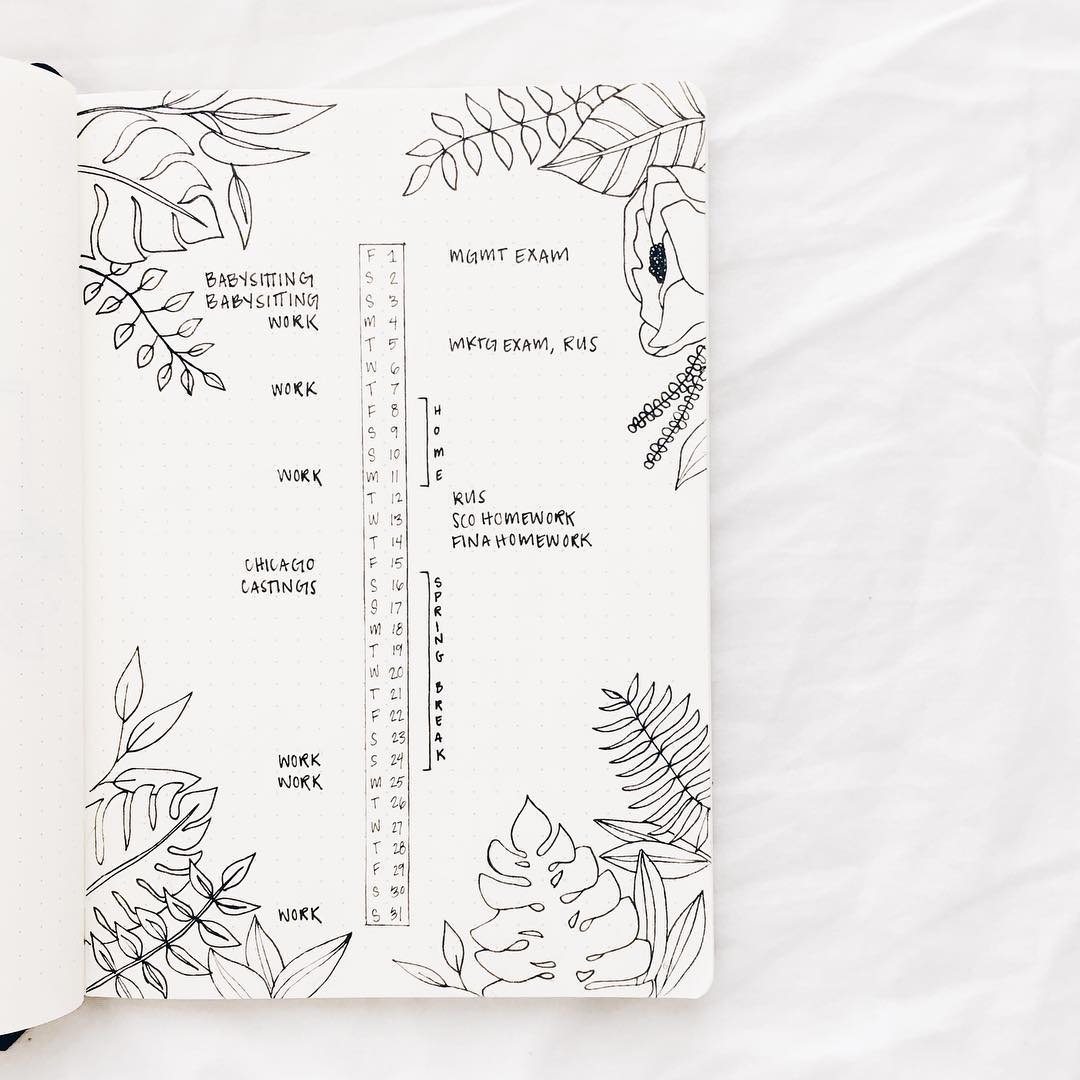 F 1 MGMT EXAM
BABYSITTING S 2
BABYSITTING S 3
WORK M 4
T 5 MKTG EXAM, RUS
W 6
WORK T 7
F 8 H
S 9 O
S 10 M
WORK M 11 E
T 12 RUS
W 13 SCO HOMEWORK
T 14 FINA HOMEWORK
CHICAGO F 15
CASTINGS S 16
S 17
M 18
T 19
W 20
T 21
F 22
S 23
WORK S 24
WORK M 25
T 26
W 27
T 28
F 29
S 30
WORK S 31
SPRING BREAK